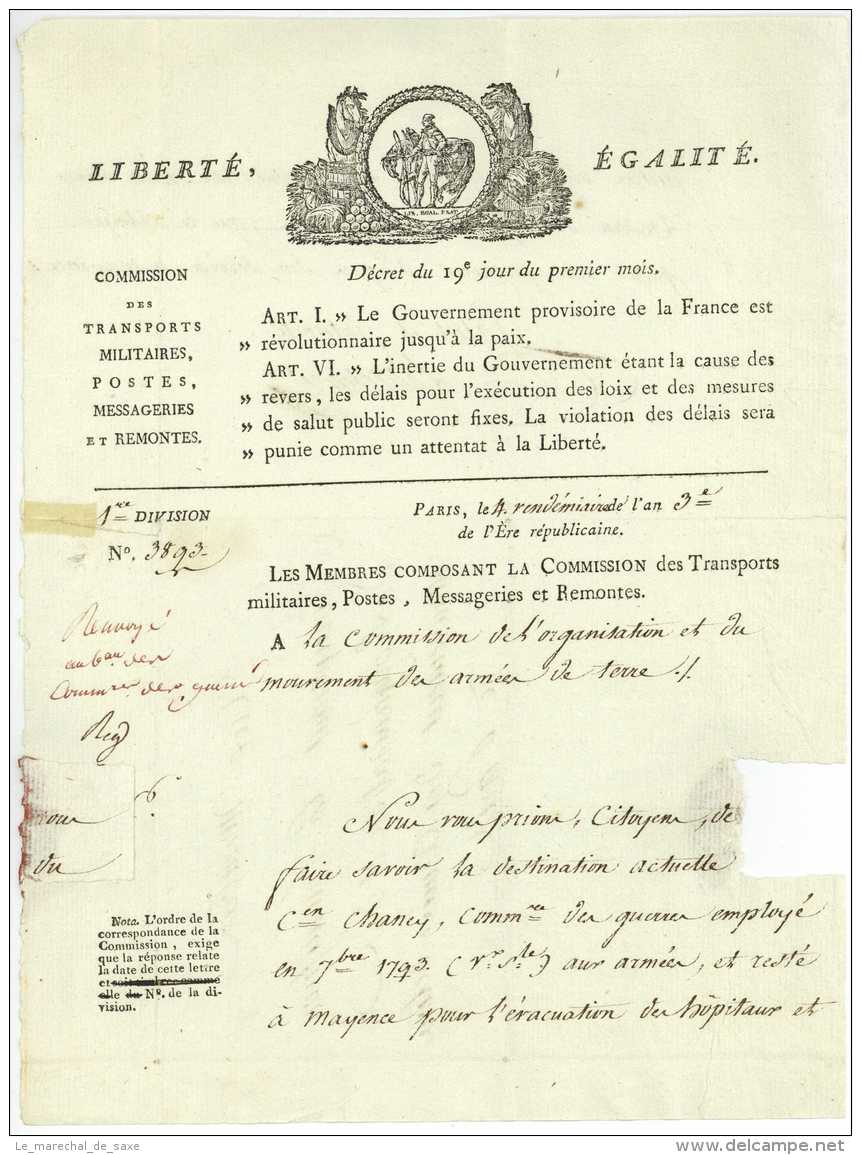 LIBERTÉ, ÉGALITÉ.
COMMISSION
DES
TRANSPORTS
MILITAIRES,
POSTES,
MESSAGERIES
ET REMONTES.
Décret du 19e jour du premier mois.
ART. I. » Le Gouvernement provisoire de la France est
» révolutionnaire jusqu'à la paix.
ART. VI. » L'inertie du Gouvernement étant la cause des
» revers, les délais pour l'exécution des loix et des mesures
» de salut public seront fixes. La violation des délais sera
» punie comme un attentat à la Liberté.
1re DIVISION
No. 3893.
PARIS, le 4. vendémiaire de l'an 3e
de l'Ère républicaine.
LES MEMBRES COMPOSANT LA COMMISSION des Transports
militaires, Postes, Messageries et Remontes.
A la Commission de l'organisation et du
mouvement des armées de terre ./.
Renvoyé
au bau. des
Commres. des guerres
Reg
6.
vous
du
Nous vous prions, Citoyens, de
faire savoir la destination actuelle
Cen Chancy, Commre des guerres employé
en 7bre 1793. (Vx Sle) aux armées, et resté
à mayence pour l'évacuation des hôpitaux et
Nota. L'ordre de la
correspondance de la
Commission, exige
que la réponse relate
la date de cette lettre
et soit timbrée comme
elle du No. de la di-
vision.
Le_marechal_de_saxe
delcampe.net